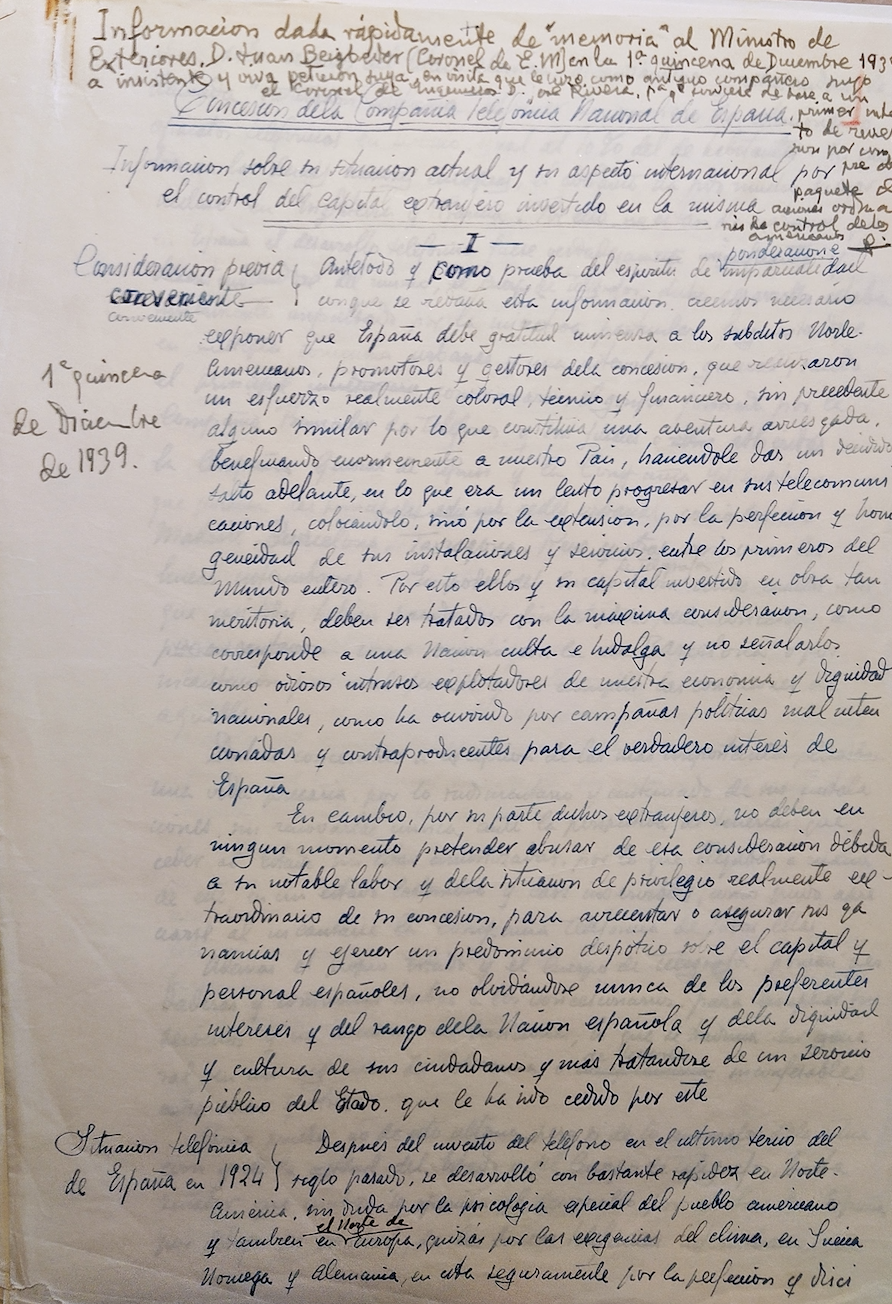 Informacion dada rápidamente de "memoria" al Ministro de
Exteriores, D. Juan Beigbeder (Coronel de E.M) en la 1ª quincena de Diciembre 193
a insistente y viva petición suya, en visita que le hizo como antiguo compañero suyo
el Coronel de Ingenieros D. José Rivera, pª qª sirviese de base a un
primer inten
to de rever
sion por com
pra de
paquete de
acciones ordina
rias de control de los
americanos
Concesion dela Compañia Telefónica Nacional de España.
Informacion sobre su situacion actual y su aspecto internacional por
el control del capital extranjero invertido en la misma
— I —
Consideracion previa
conveniente
conveniente
ponderacion e
Antetodo y como prueba del espiritu de imparcialidad
conque se redacta esta informacion, creemos necesario
exponer que España debe gratitud inmensa a los subditos Norte-
Americanos, promotores y gestores dela concesion, que realizaron
un esfuerzo realmente colosal, técnico y financiero, sin precedente
alguno similar por lo que constituia una aventura arriesgada,
beneficiando enormemente a nuestro Pais, haciendole dar un decidido
salto adelante, en lo que era un lento progresar en sus telecomuni
caciones, colocándolo, sinó por la extension, por la perfeccion y homo
geneidad de sus instalaciones y servicios, entre los primeros del
Mundo entero. Por esto ellos y su capital invertido en obra tan
meritoria, deben ser tratados con la máxima consideracion, como
corresponde a una Nacion culta e hidalga y no señalarlos
como odiosos intrusos explotadores de nuestra economia y dignidad
nacionales, como ha ocurrido por campañas politicas mal inten
cionadas y contraproducentes para el verdadero interés de
España
1ª quincena
de Diciembre
de 1939.
En cambio, por su parte dichos extranjeros, no deben en
ningun momento pretender abusar de esa consideracion debida
a su notable labor y dela situacion de privilegio realmente ex-
traordinario de su concesion, para aumentar o asegurar sus ga
nancias y ejercer un predominio despótico sobre el capital y
personal españoles, no olvidándose nunca de los preferentes
intereses y del rango dela Nacion española y dela dignidad
y cultura de sus ciudadanos y más tratandose de un servicio
público del Estado, que le ha sido cedido por este
Situacion telefónica
de España en 1924
Después del invento del teléfono en el ultimo tercio del
siglo pasado, se desarrolló con bastante rapidez en Norte-
América, sin duda por la psicologia especial del pueblo americano
y tambien en el Norte de Europa, quizás por las exigencias del clima, en Suecia
Noruega y Alemania, en esta seguramente por la perfeccion y disci